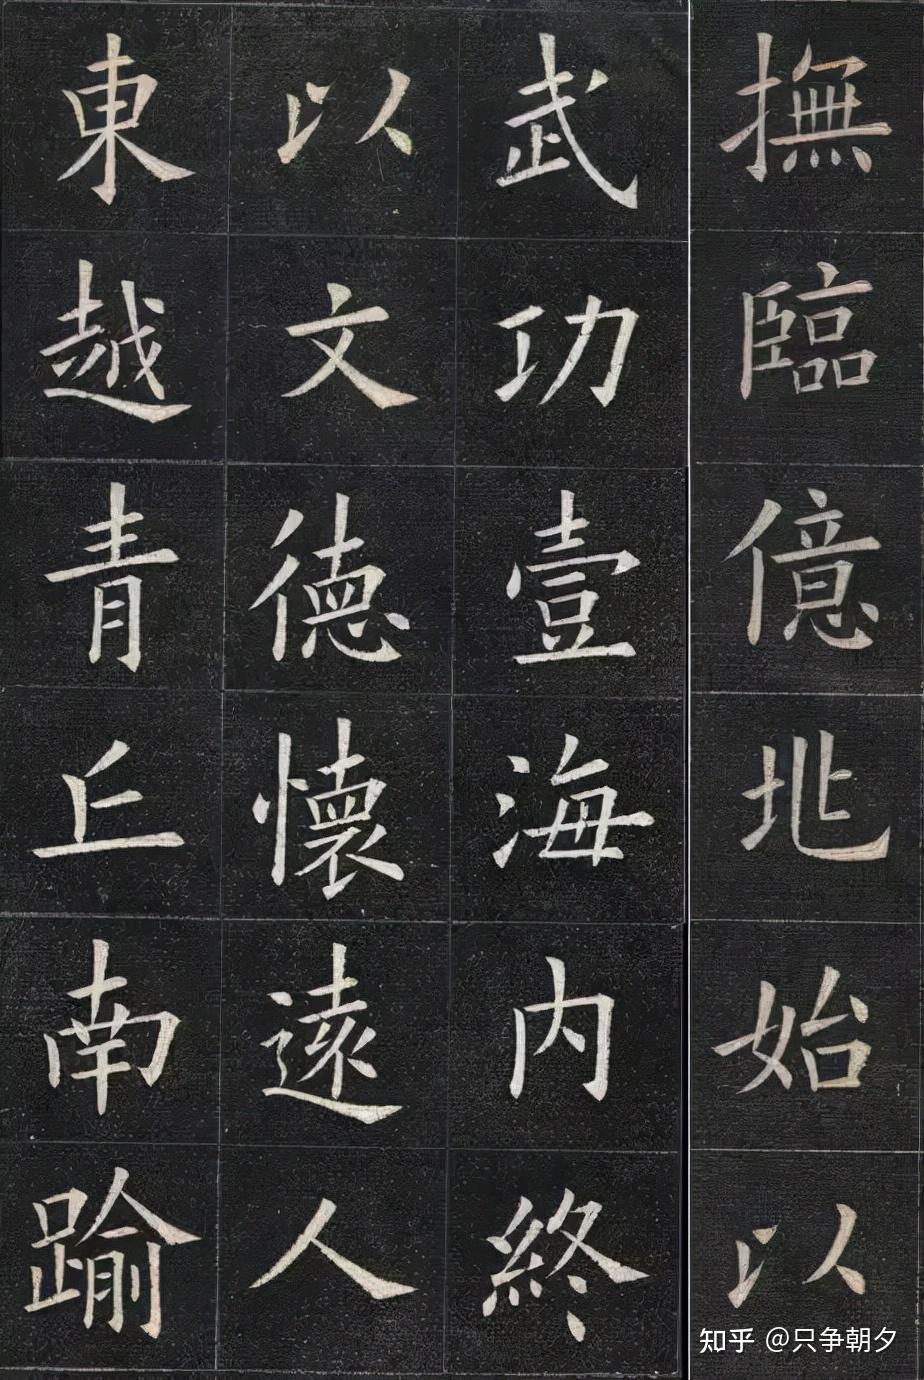 撫臨億兆始以
武功壹海内終
以文德懷遠人
東越青丘南踰
知乎 @只争朝夕